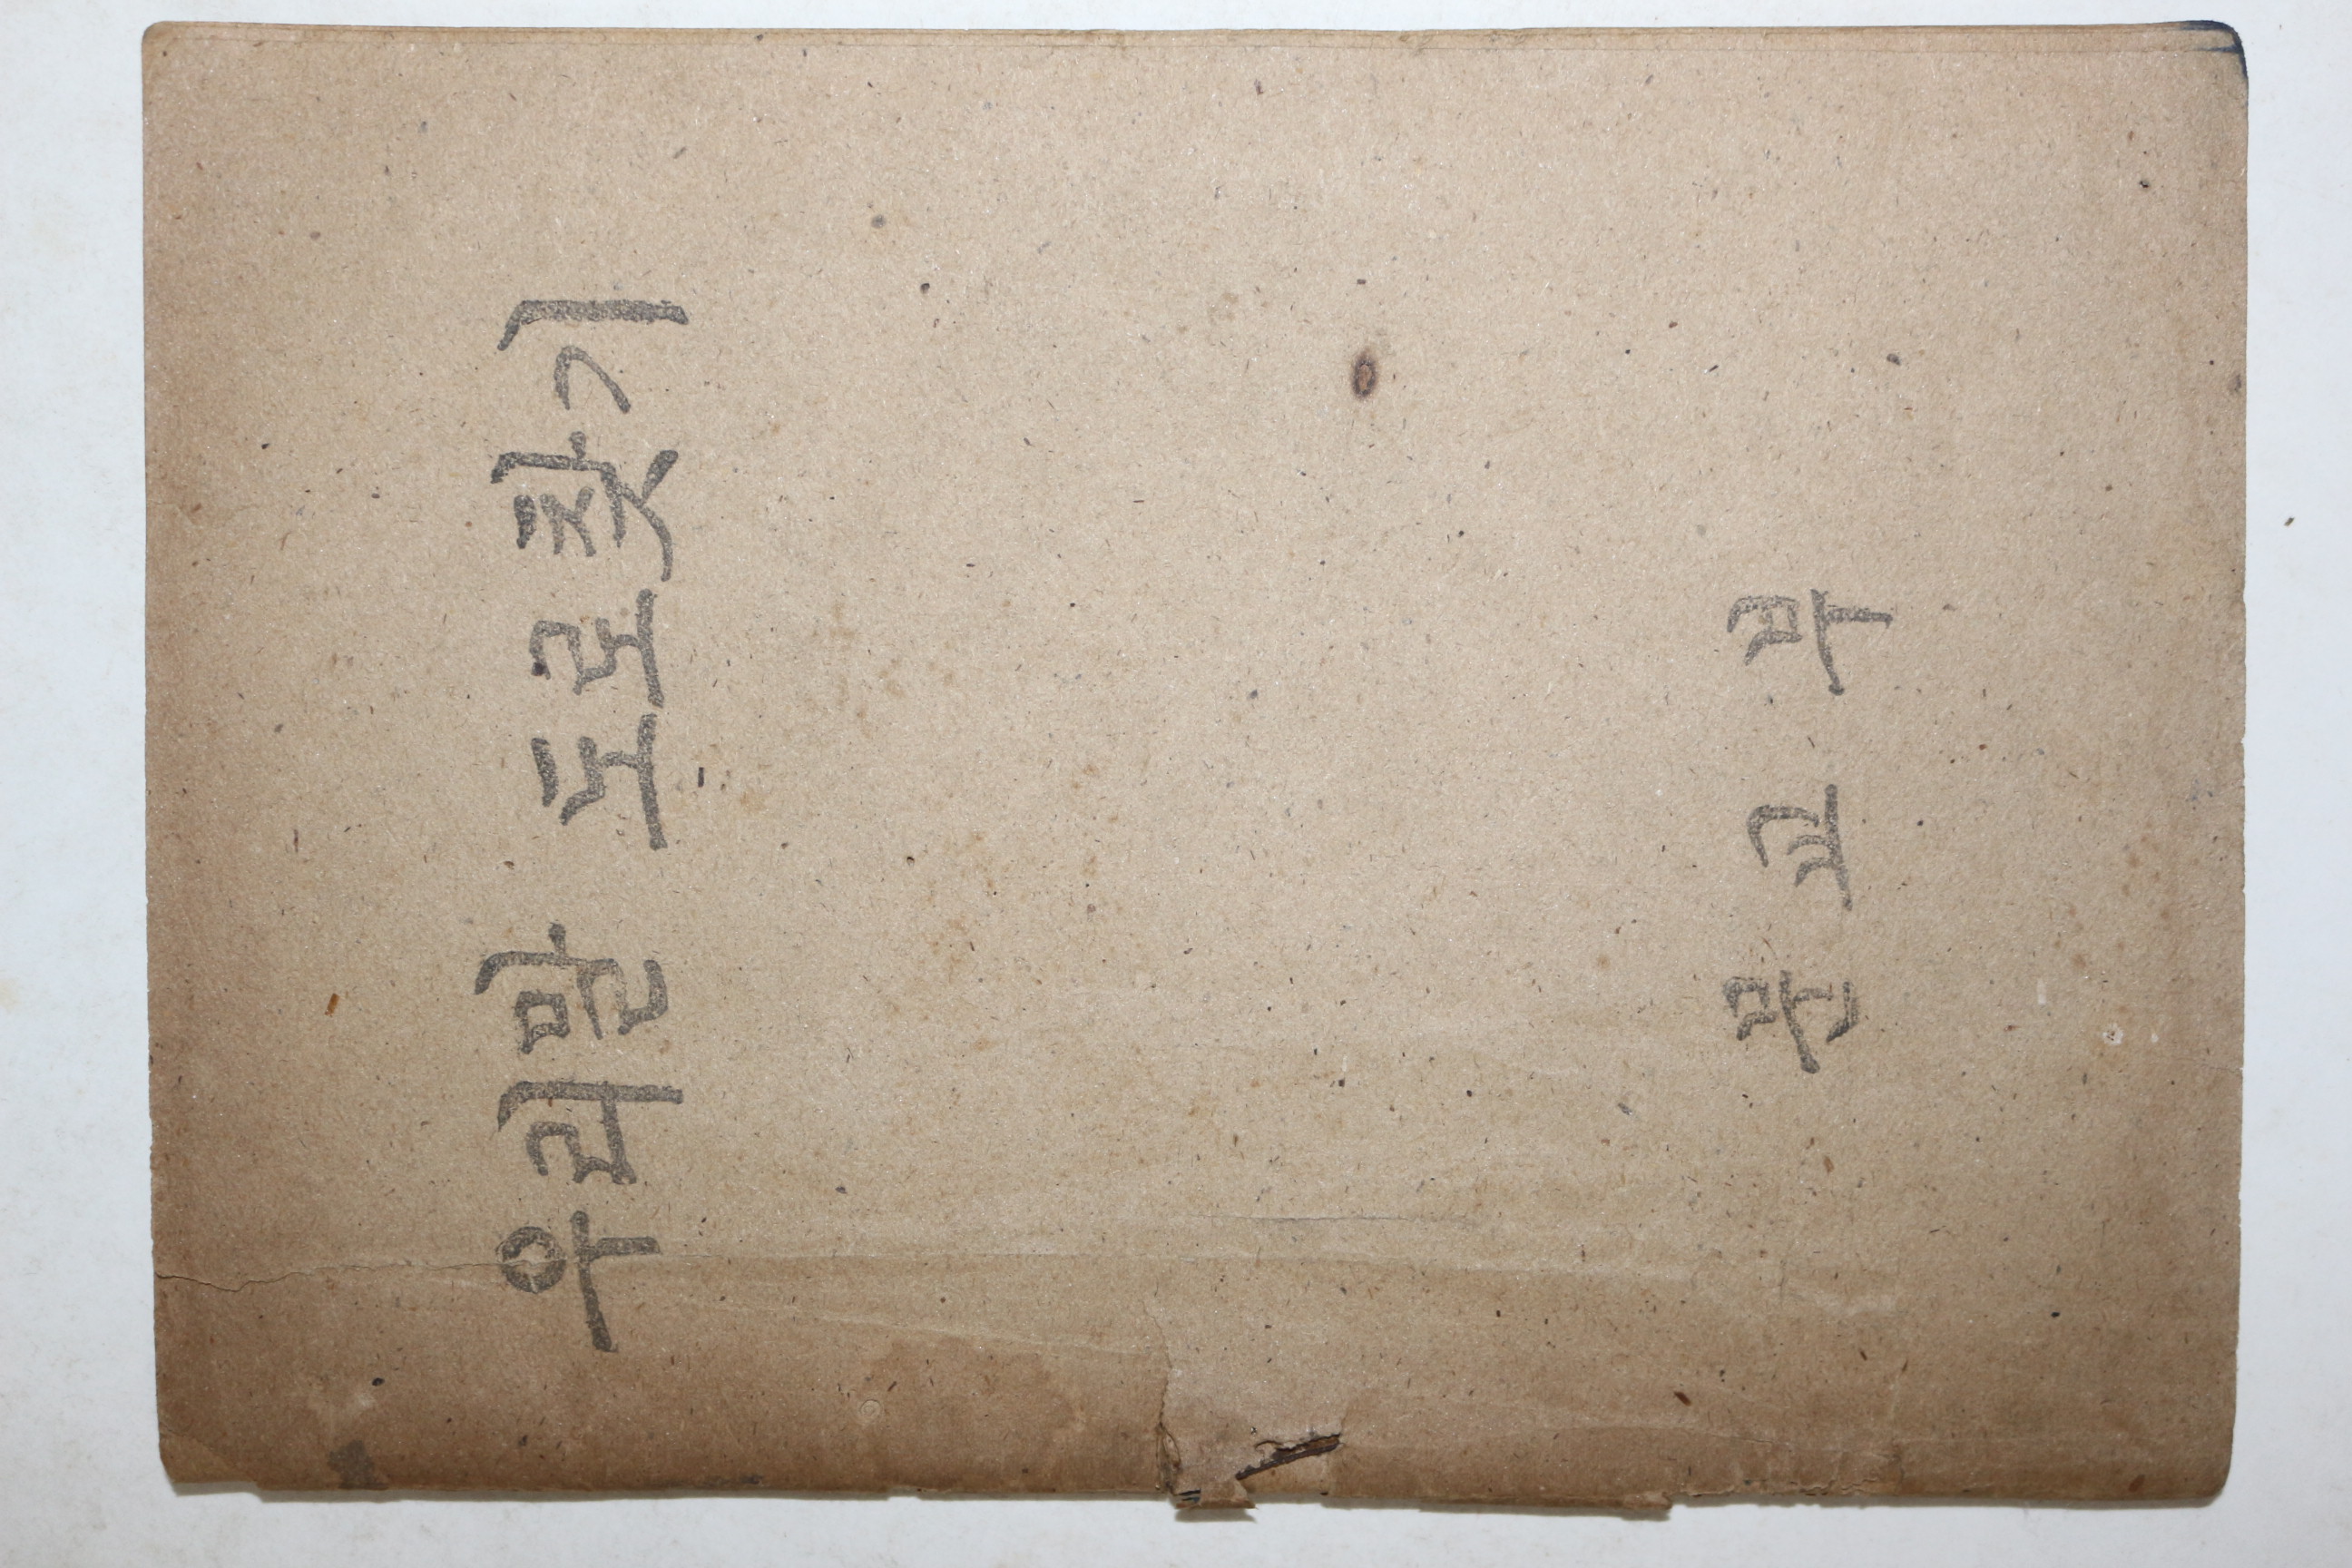 우리말 도로 찾기
문교부